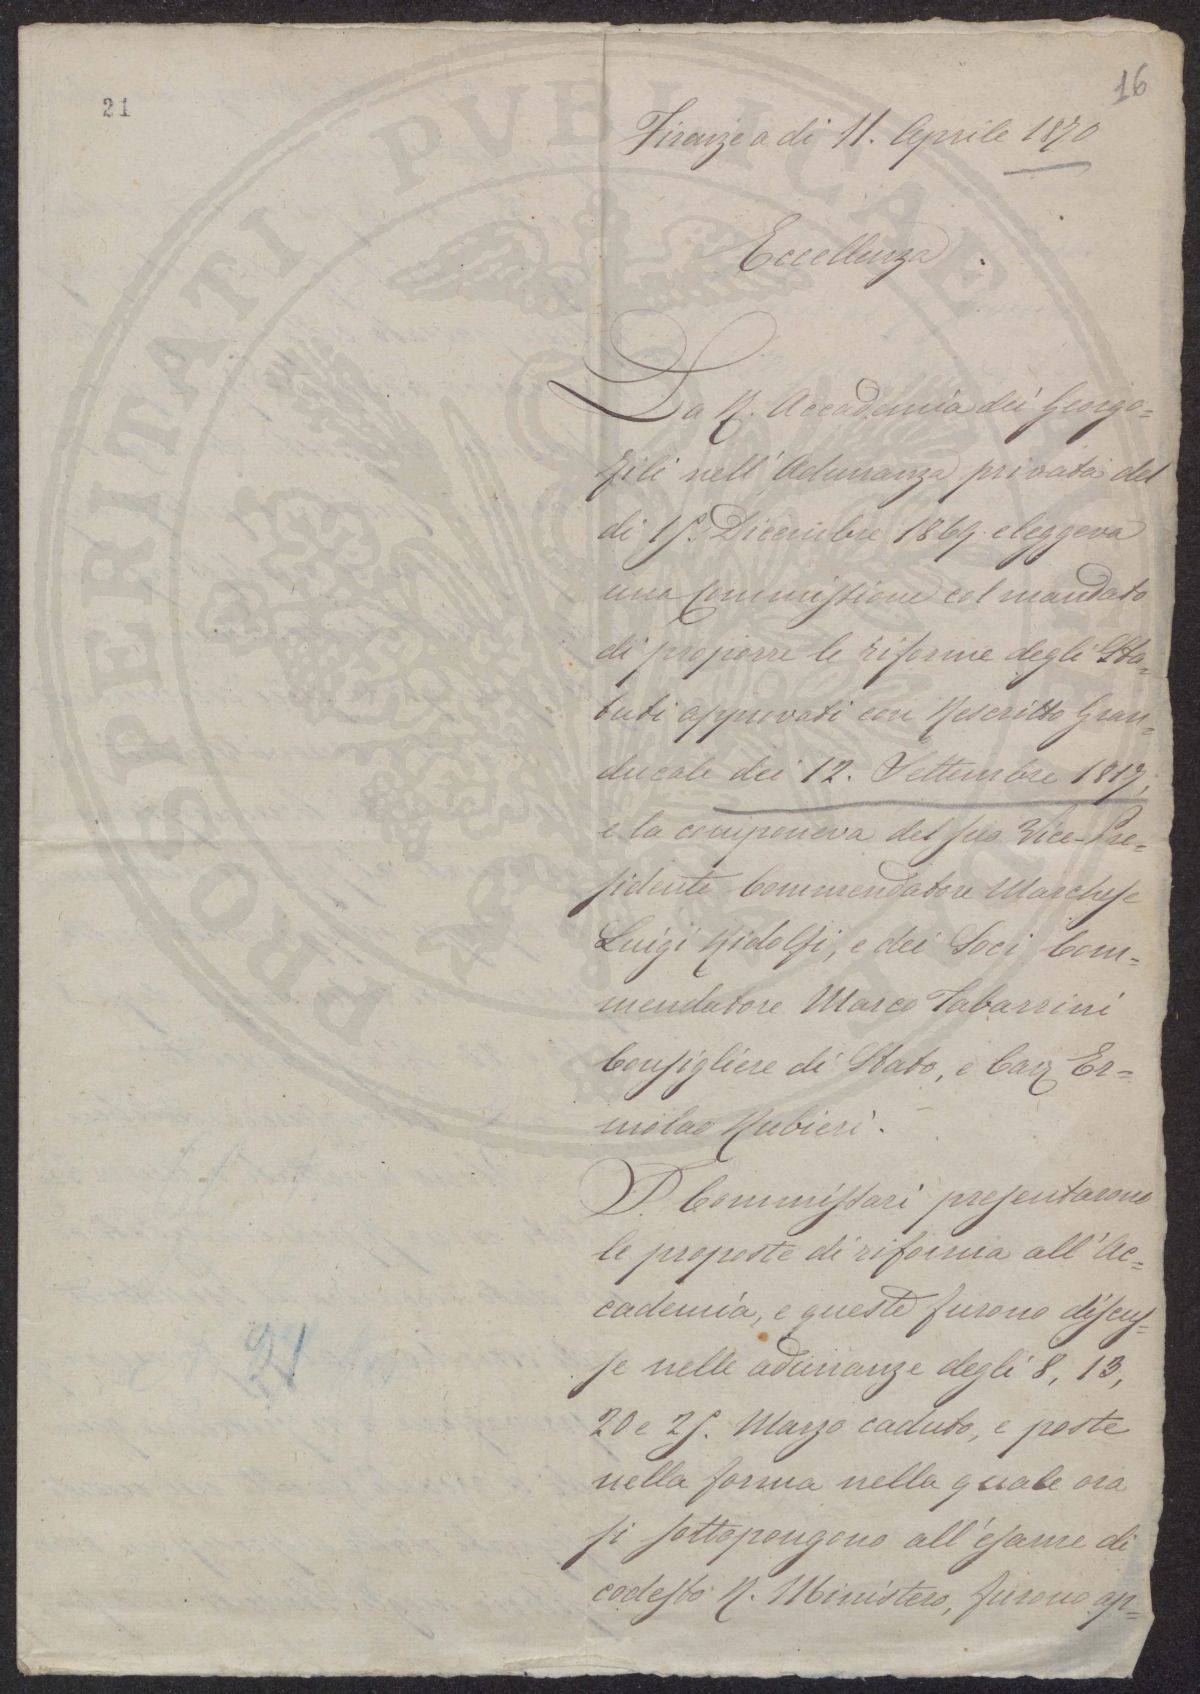 21
16
Firenze a di 11. Aprile 1870
Eccellenza
La R. Accademia dei Georgo=
fili nell'Adunanza privata del
di 15. Dicembre 1869. eleggeva
una Commissione col mandato
di proporre le riforme degli Sta=
tuti approvati con Rescritto Gran=
ducale dei 12. Settembre 1817,
e la componeva del suo Vice-Pre=
sidente Commendatore Marchese
Luigi Ridolfi, e dei Soci Com=
mendatore Marco Tabarrini
Consigliere di Stato, e Cav Er=
molao Rubieri.
I Commissari presentarono
le proposte di riforma all'Ac=
cademia, e queste furono discus=
se nelle adunanze degli 8, 13,
20 e 25. Marzo caduto, e poste
nella forma nella quale ora
si sottopongono all'esame di
codesto R. Ministero, furono ap=
PROSPERITATI PVBLICAE